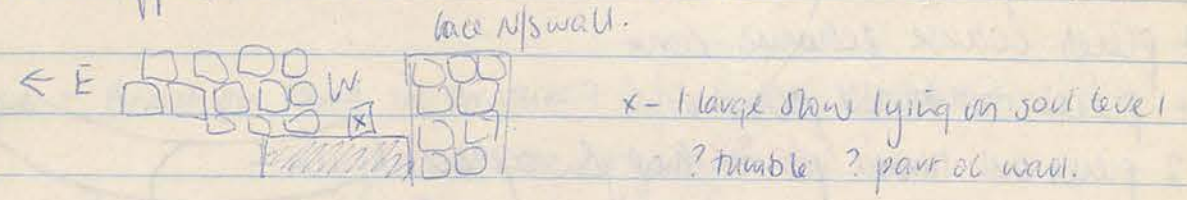 face N/S wall.
← E W
x
x - 1 large stone lying on soil level
? tumble ? part of wall.